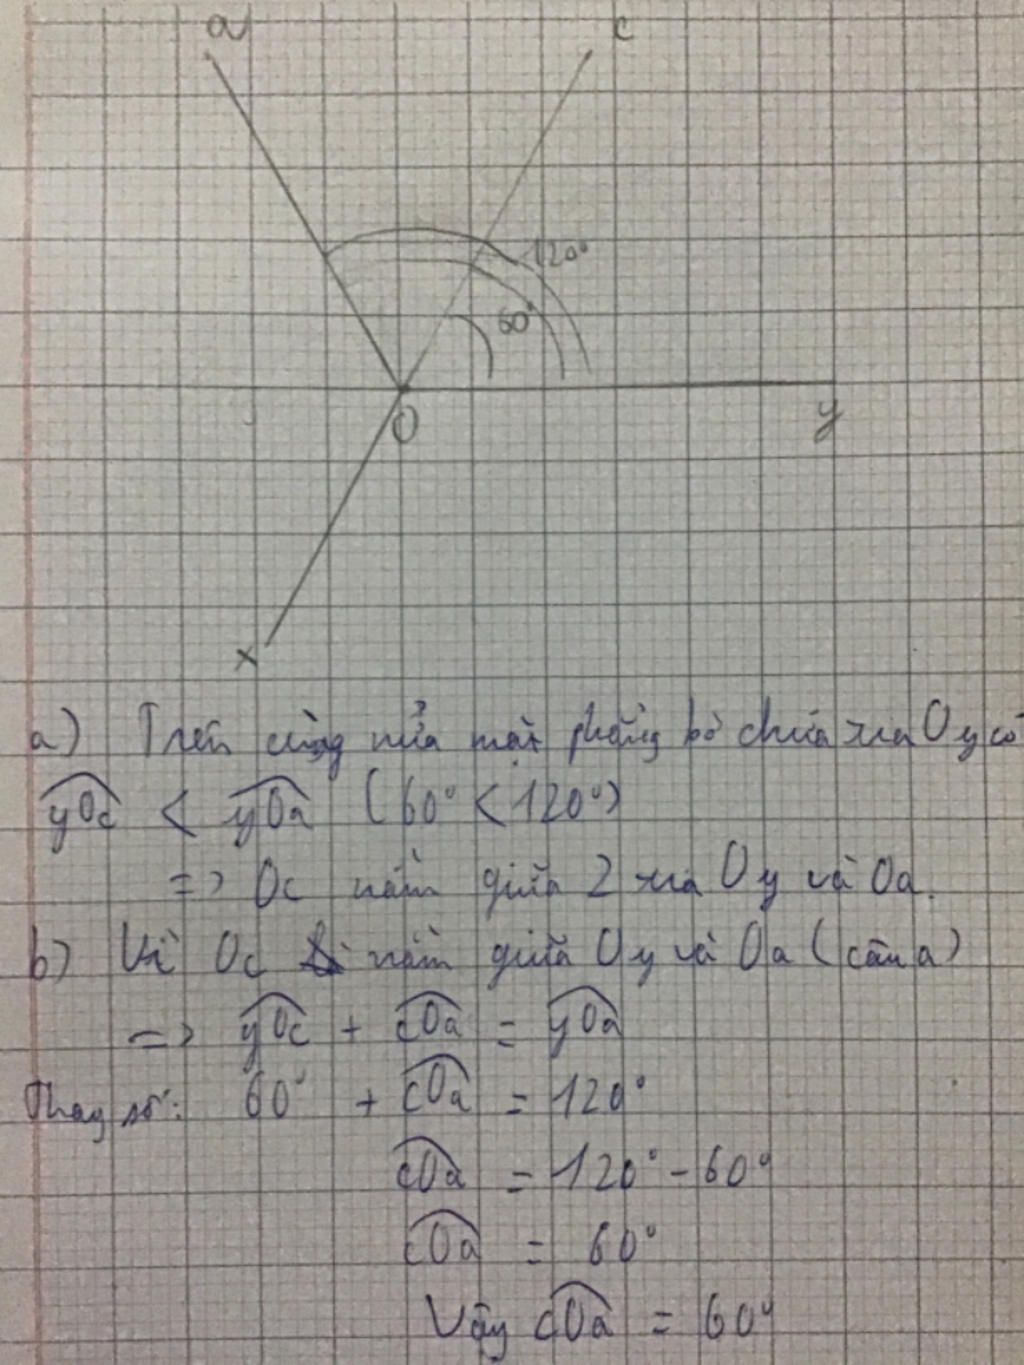 a
c
120°
60°
O
y
x
a) Trên cùng nửa mặt phẳng bờ chứa tia Oy có
yOc < yOa (60° < 120°)
=> Oc nằm giữa 2 tia Oy và Oa.
b) Vì Oc nằm giữa Oy và Oa (câu a)
=> yOc + cOa = yOa
Thay số: 60° + cOa = 120°
cOa = 120° - 60°
cOa = 60°
Vậy cOa = 60°